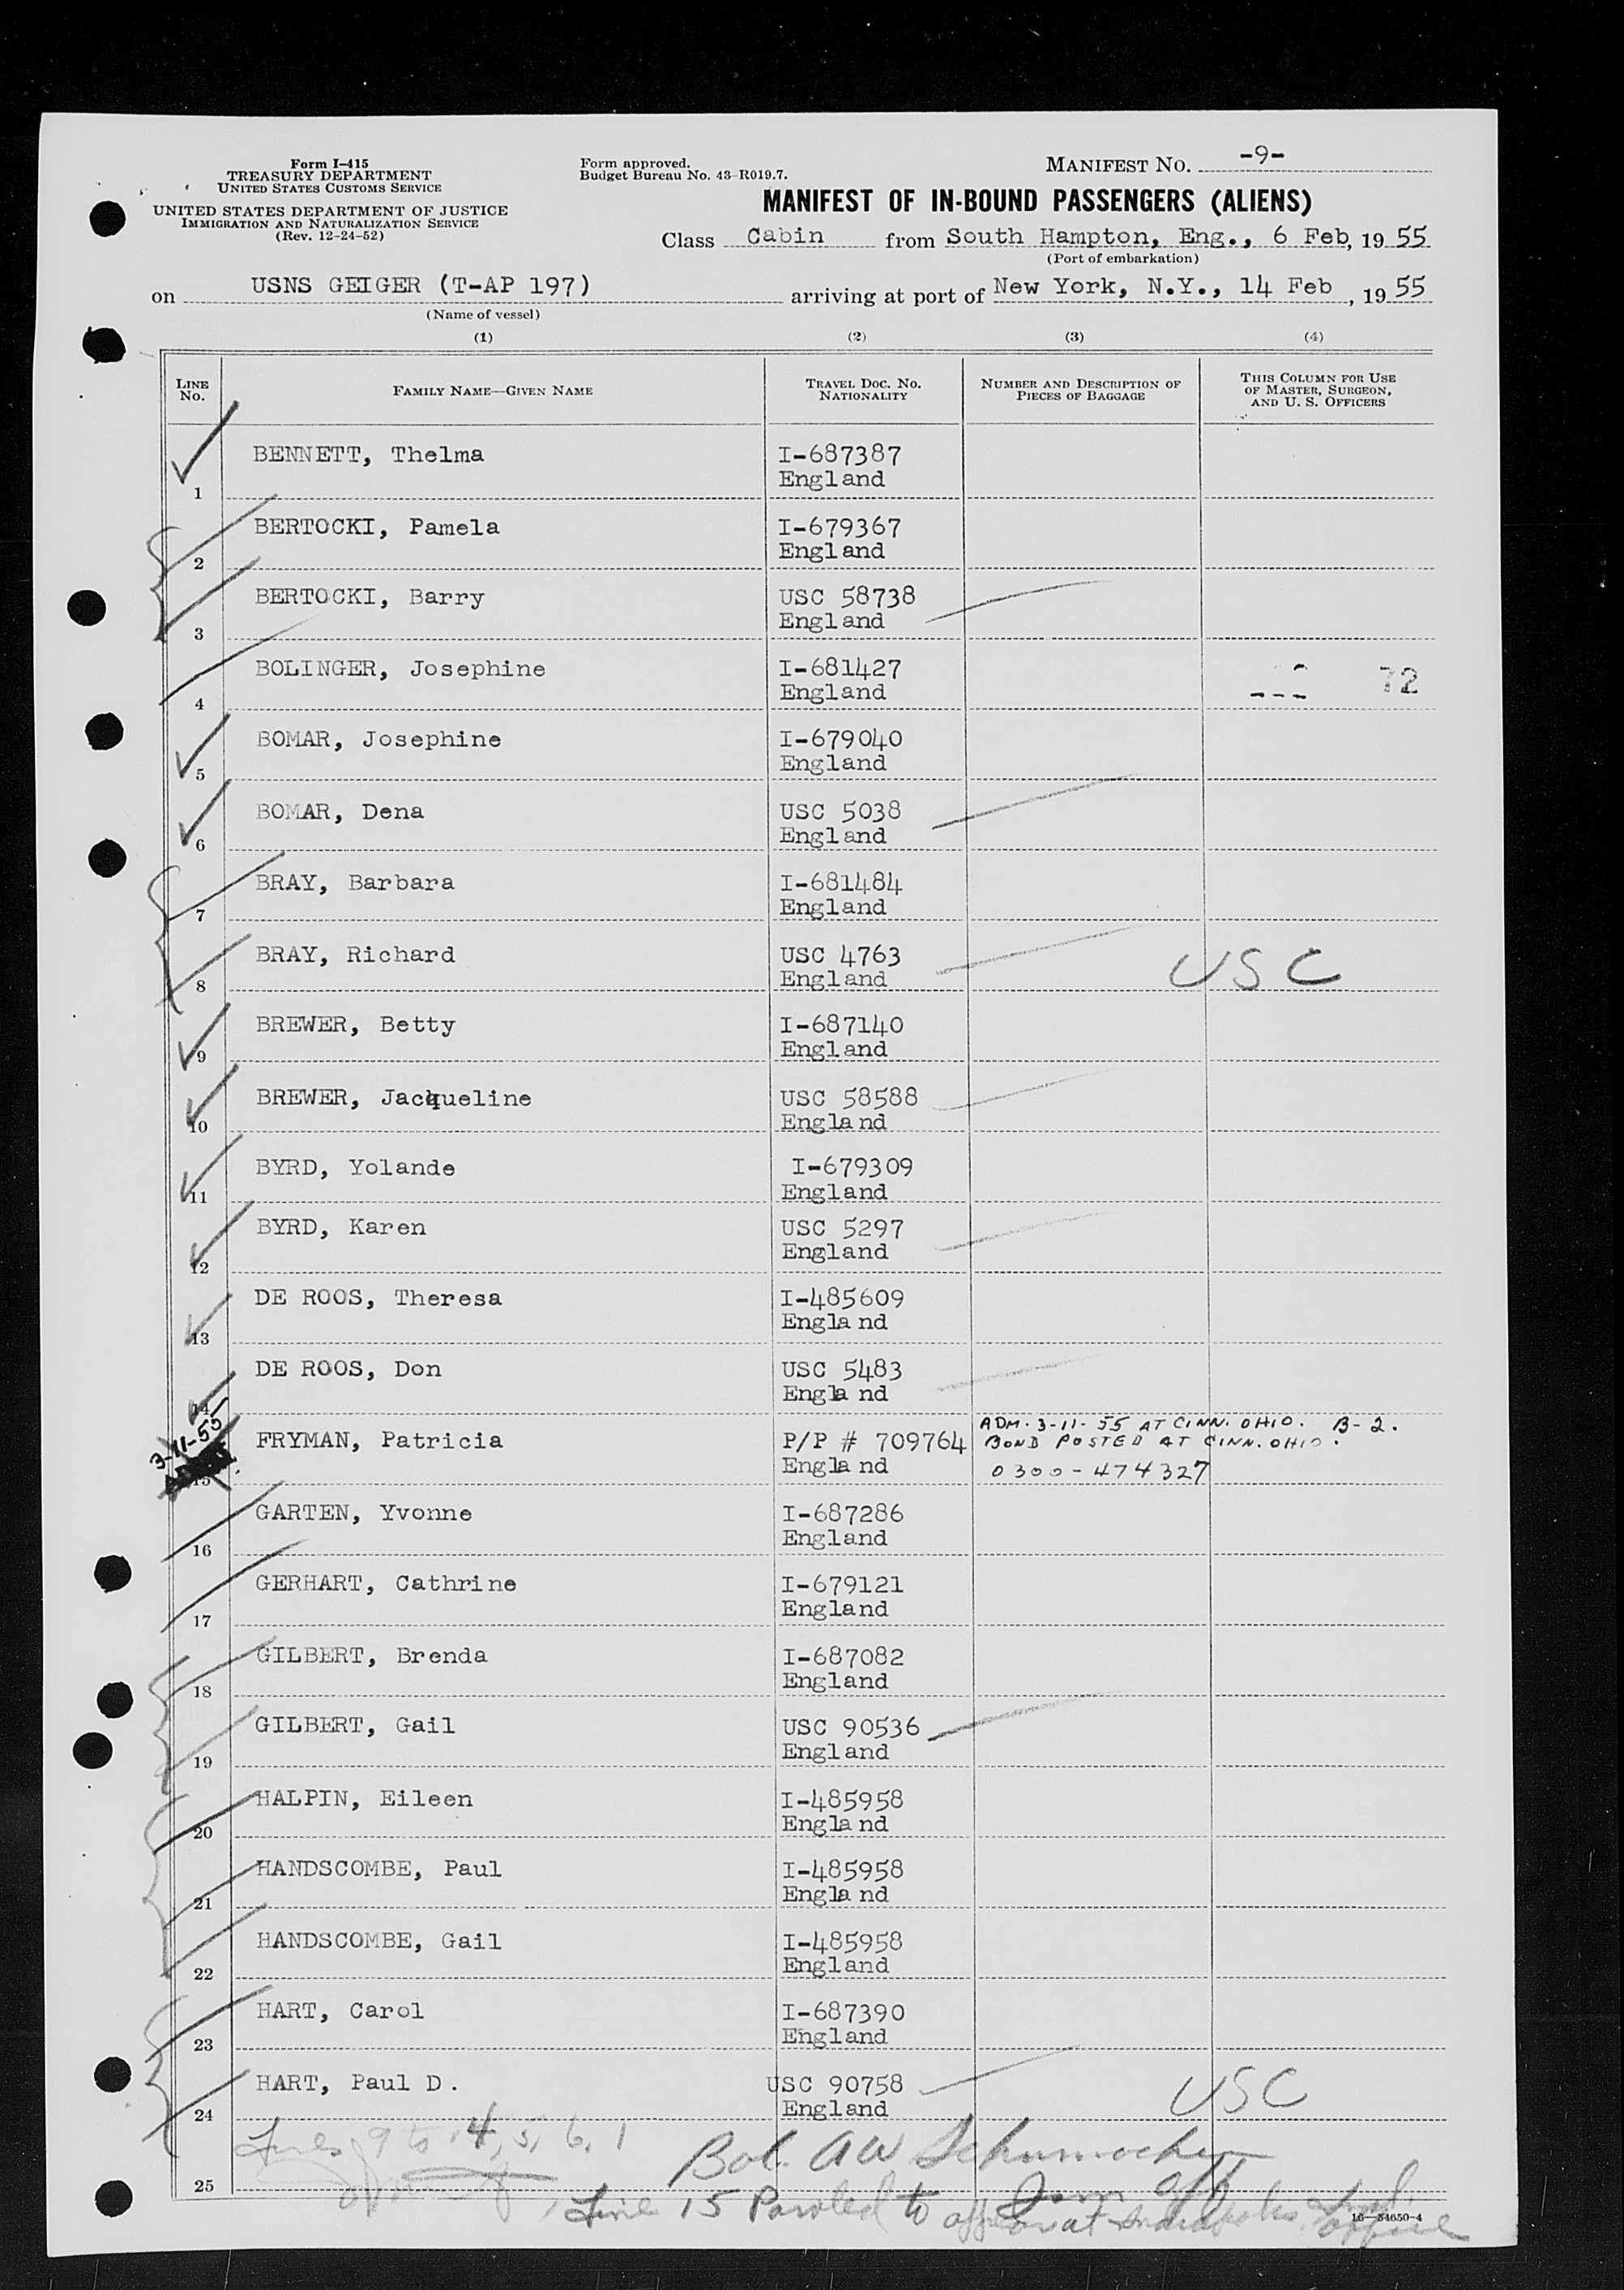 Form I-415
TREASURY DEPARTMENT
UNITED STATES CUSTOMS SERVICE
UNITED STATES DEPARTMENT OF JUSTICE
IMMIGRATION AND NATURALIZATION SERVICE
(Rev. 12-24-52)
Form approved.
Budget Bureau No. 43-R019.7.
MANIFEST NO. -9-
MANIFEST OF IN-BOUND PASSENGERS (ALIENS)
Class Cabin from South Hampton, Eng., 6 Feb, 1955
(Port of embarkation)
on USNS GEIGER (T-AP 197) arriving at port of New York, N.Y., 14 Feb, 1955
(Name of vessel)
(1) (2) (3) (4)
LINE NO. FAMILY NAME—GIVEN NAME TRAVEL DOC. NO. NATIONALITY NUMBER AND DESCRIPTION OF PIECES OF BAGGAGE THIS COLUMN FOR USE OF MASTER, SURGEON, AND U. S. OFFICERS
1 BENNETT, Thelma I-687387
England
2 BERTOCKI, Pamela I-679367
England
3 BERTOCKI, Barry USC 58738
England
4 BOLINGER, Josephine I-681427 72
England
5 BOMAR, Josephine I-679040
England
6 BOMAR, Dena USC 5038
England
7 BRAY, Barbara I-681484
England
8 BRAY, Richard USC 4763 USC
England
9 BREWER, Betty I-687140
England
10 BREWER, Jacqueline USC 58588
England
11 BYRD, Yolande I-679309
England
12 BYRD, Karen USC 5297
England
13 DE ROOS, Theresa I-485609
England
14 DE ROOS, Don USC 5483
England
3-11-55
15 FRYMAN, Patricia P/P # 709764 ADM. 3-11-55 AT CINN. OHIO. B-2.
England BOND POSTED AT CINN. OHIO.
0300-474327
16 GARTEN, Yvonne I-687286
England
17 GERHART, Cathrine I-679121
England
18 GILBERT, Brenda I-687082
England
19 GILBERT, Gail USC 90536
England
20 HALPIN, Eileen I-485958
England
21 HANDSCOMBE, Paul I-485958
England
22 HANDSCOMBE, Gail I-485958
England
23 HART, Carol I-687390
England
24 HART, Paul D. USC 90758 USC
England
Lines 9 to 14, 5, 6, 1
Bal. AW Schumacher
25
Line 15 Paroled to at office
16—54650-4